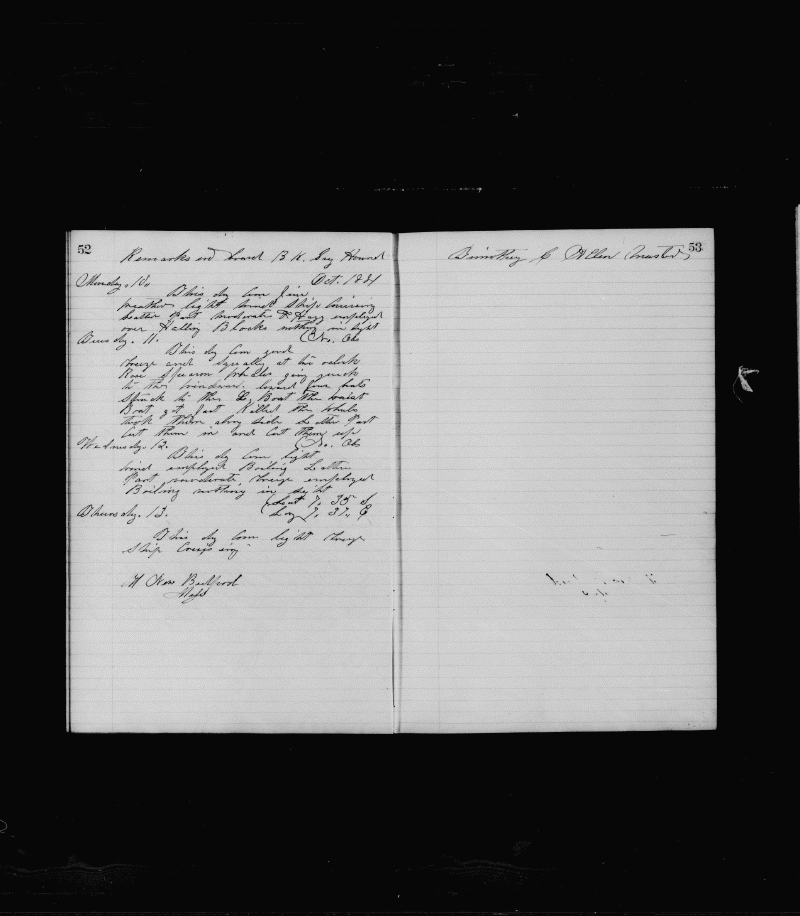 52
Remarks on board B K. Gay Howard
Monday. 10. Oct. 1881
This dy Com fine
weather light wind Ship Cruising
Latter Part moderate & Hazy employed
over Halling Blocks nothing in sight
Tuesdy. 11. No. Ob
This dy Com good
breeze and squally at two oclock
Rose Spearm Whales going quick
to the windward. lowerd four boats
Struck to the Boat the waist
Boat got fast Killed the whale
took them along side Latter Part
Cut them in and Cut them up
Wednesdy. 12. No. Ob
This dy Com light
wind employed Boiling Latter
Part moderate breeze employed
Boiling nothing in sight
Lat 7, 35 S
Thursdy. 13. Long 7, 37, E
This dy Com light breeze
Ship Cruising
New Bedford
Mass
53
Timothy C Allen Master